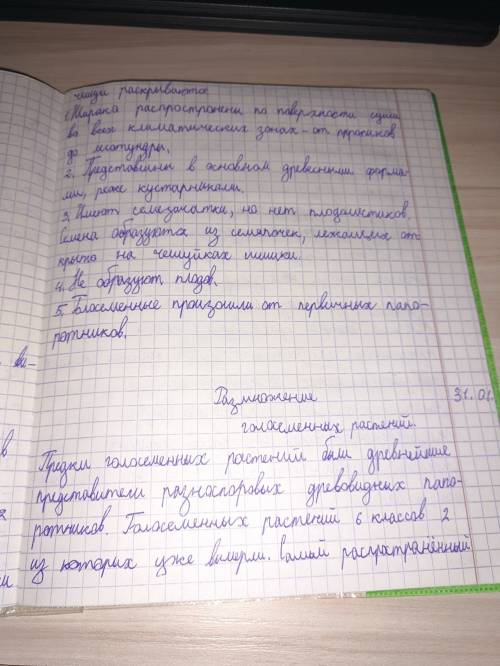 чешуи раскрываются
1. Широко распространены по поверхности суши
во всех климатических зонах - от тропиков
до лесотундры.
2. Представлены в основном древесными форма-
ми, реже кустарниками.
3. Имеют семезачатки, но нет плодолистиков.
Семена образуются из семяпочек, лежащих от-
крыто на чешуйках шишки.
4. Не образуют плодов.
5. Голосеменные произошли от первичных папо-
ротников.
31.01
Размножение
голосеменных растений.
Предки голосеменных растений были древнейшие
представители разноспоровых древовидных папо-
ротников. Голосеменных растений 6 классов 2
из которых уже вымерли. Самый распространённый